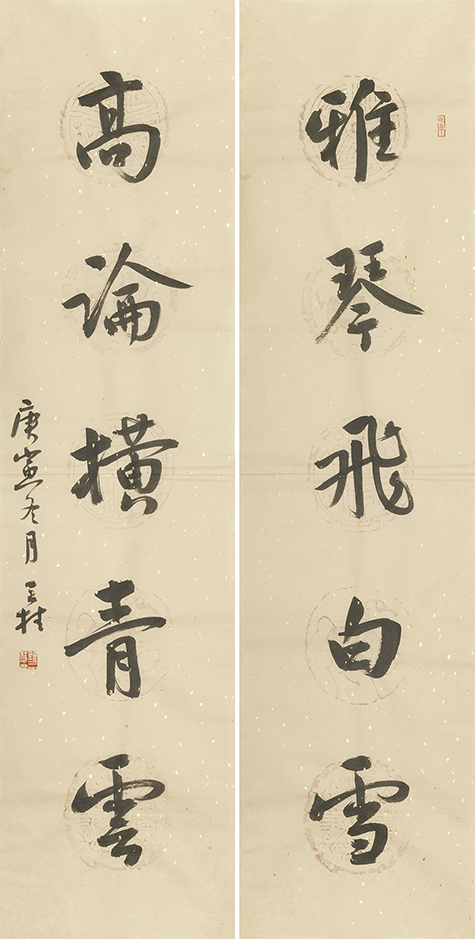 雅琴飛白雪
高論橫青雲
庚寅冬月